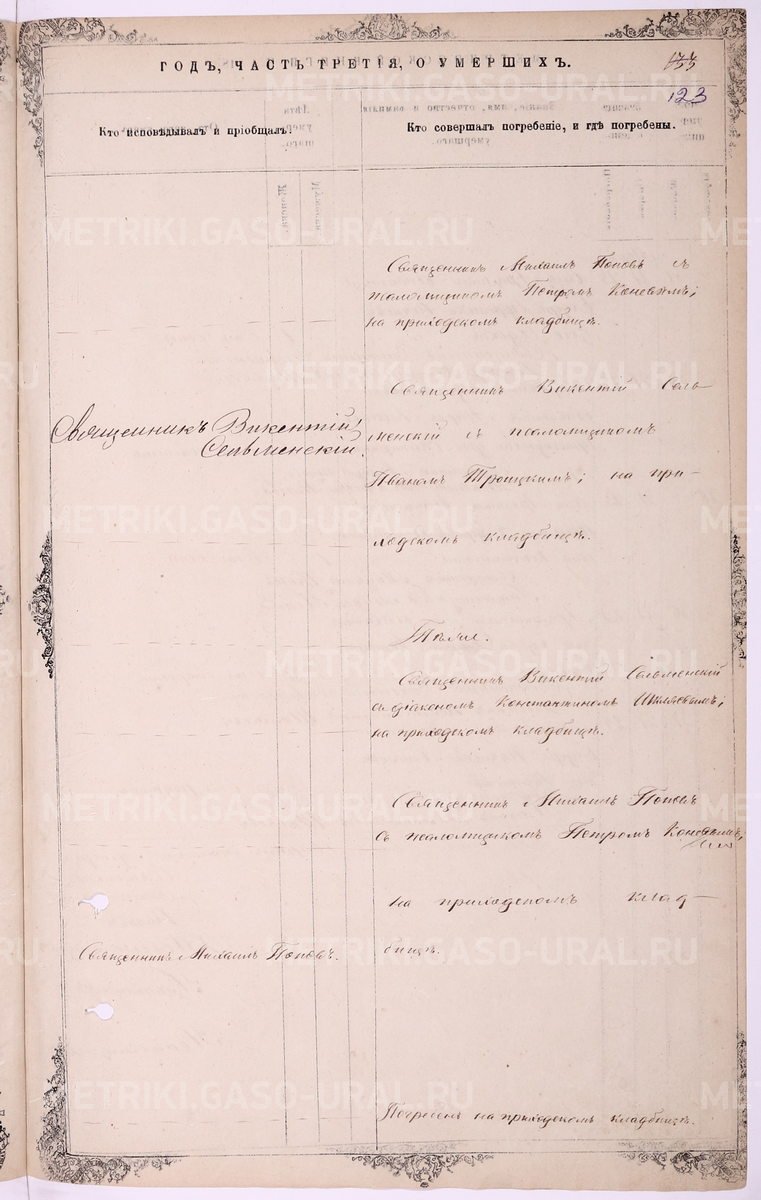 ГОДЪ, ЧАСТЬ ТРЕТІЯ, О УМЕРШИХЪ.
123
Кто исповѣдывалъ и пріобщалъ.
Кто совершалъ погребеніе, и гдѣ погребены.
Священникъ Михаилъ Поповъ съ
псаломщикомъ Петромъ
на приходскомъ кладбищѣ.
Священникъ Викентій Сель-
менскій съ псаломщикомъ
Иваномъ Троицкимъ; на при-
ходскомъ кладбищѣ.
Священникъ Викентій
Сельменскій.
Тѣ же.
Священникъ Викентій Сельменскій
съ діакономъ Константиномъ
на приходскомъ кладбищѣ.
Священникъ Михаилъ Поповъ
съ псаломщикомъ Петромъ
на приходскомъ клад-
бищѣ.
Священникъ Михаилъ Поповъ.
Погребенъ на приходскомъ кладбищѣ.
METRIKI.GASO-URAL.RU